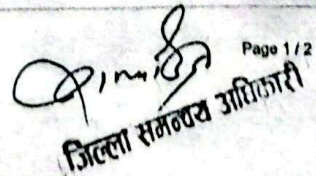 Page 1 / 2
जिल्ला समन्वय अधिकारी